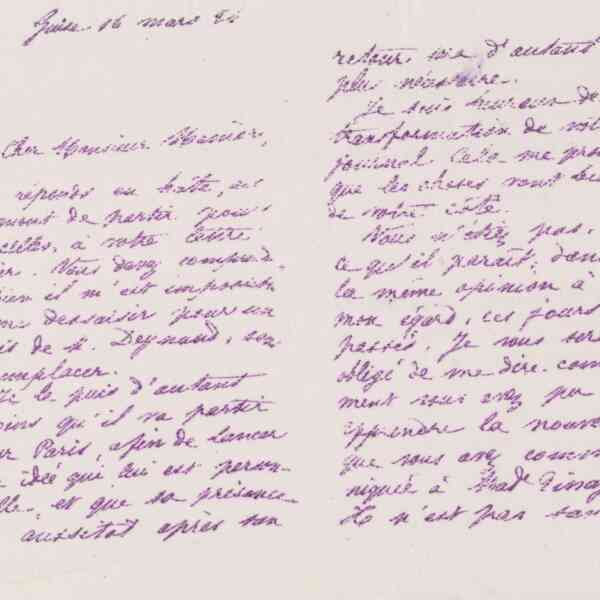 Guise 16 mars
Cher Monsieur
réponds en hâte, au
moment de partir pour
à votre lettre
Vous devez comprend-
bien il m'est impossible
me dessaisir pour un
is de M. Deynaud, sans
remplacer.
Je le puis d'autant
moins qu'il va partir
Paris, afin de lancer
idée qui lui est person-
lle, et que sa présence
aussitôt après son
retour sera d'autant
plus nécessaire.
Je suis heureux de
transformation de votre
journal. Cela me
que les choses vont
de votre côté.
Vous n'étiez pas, à
ce qu'il paraît, dans
la même opinion à
mon égard, ces jours
passés. Je vous serai
obligé de me dire com-
ment vous avez pu
apprendre la nouv
que vous avez commu-
niquée à
Il n'est pas sans